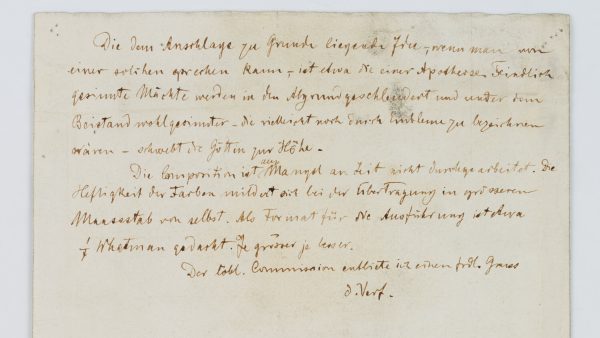 Die dem Anschlage zu Grunde liegende Idee, wenn man von
einer solchen sprechen kann, – ist etwa die einer Apotheose. Feindlich
gesinnte Mächte werden in den Abgrund geschleudert und unter dem
Beistand wohlgesinnter – die vielleicht noch durch Embleme zu bezeichnen
wären – schwebt die Göttin zur Höhe –
Die Composition ist aus Mangel an Zeit nicht durchgearbeitet. Die
Heftigkeit der Farben mildert sich bei der Übertragung in grösseren
Maassstab von selbst. Als Format für die Ausführung ist etwa
Whatman gedacht. Je grösser je besser.
Der löbl. Commission entbiete ich einen frdl. Gruss
d. Verf.